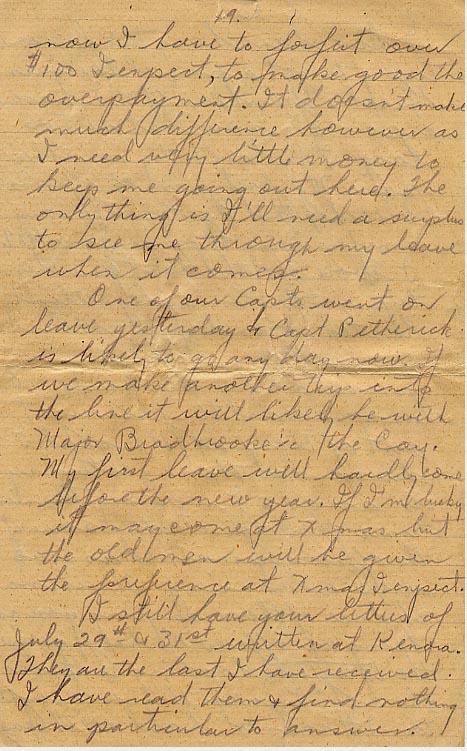 19.
now I have to forfeit over
$100 I expect, to make good the
overpayment. It doesn't make
much difference however as
I need very little money to
keep me going out here. The
only thing is I'll need a surplus
to see me through my leave
when it comes.
One of our Capts went on
leave yesterday & Capt Petherick
is likely to go any day now. If
we make another trip into
the line it will likely be with
Major Bradbrooke i/c the Coy.
My first leave will hardly come
before the new year. If I'm lucky
it may come at Xmas but
the old men will be given
the preference at Xmas I expect.
I still have your letters of
July 29th & 31st written at Kenora.
They are the last I have received.
I have read them & find nothing
in particular to answer.